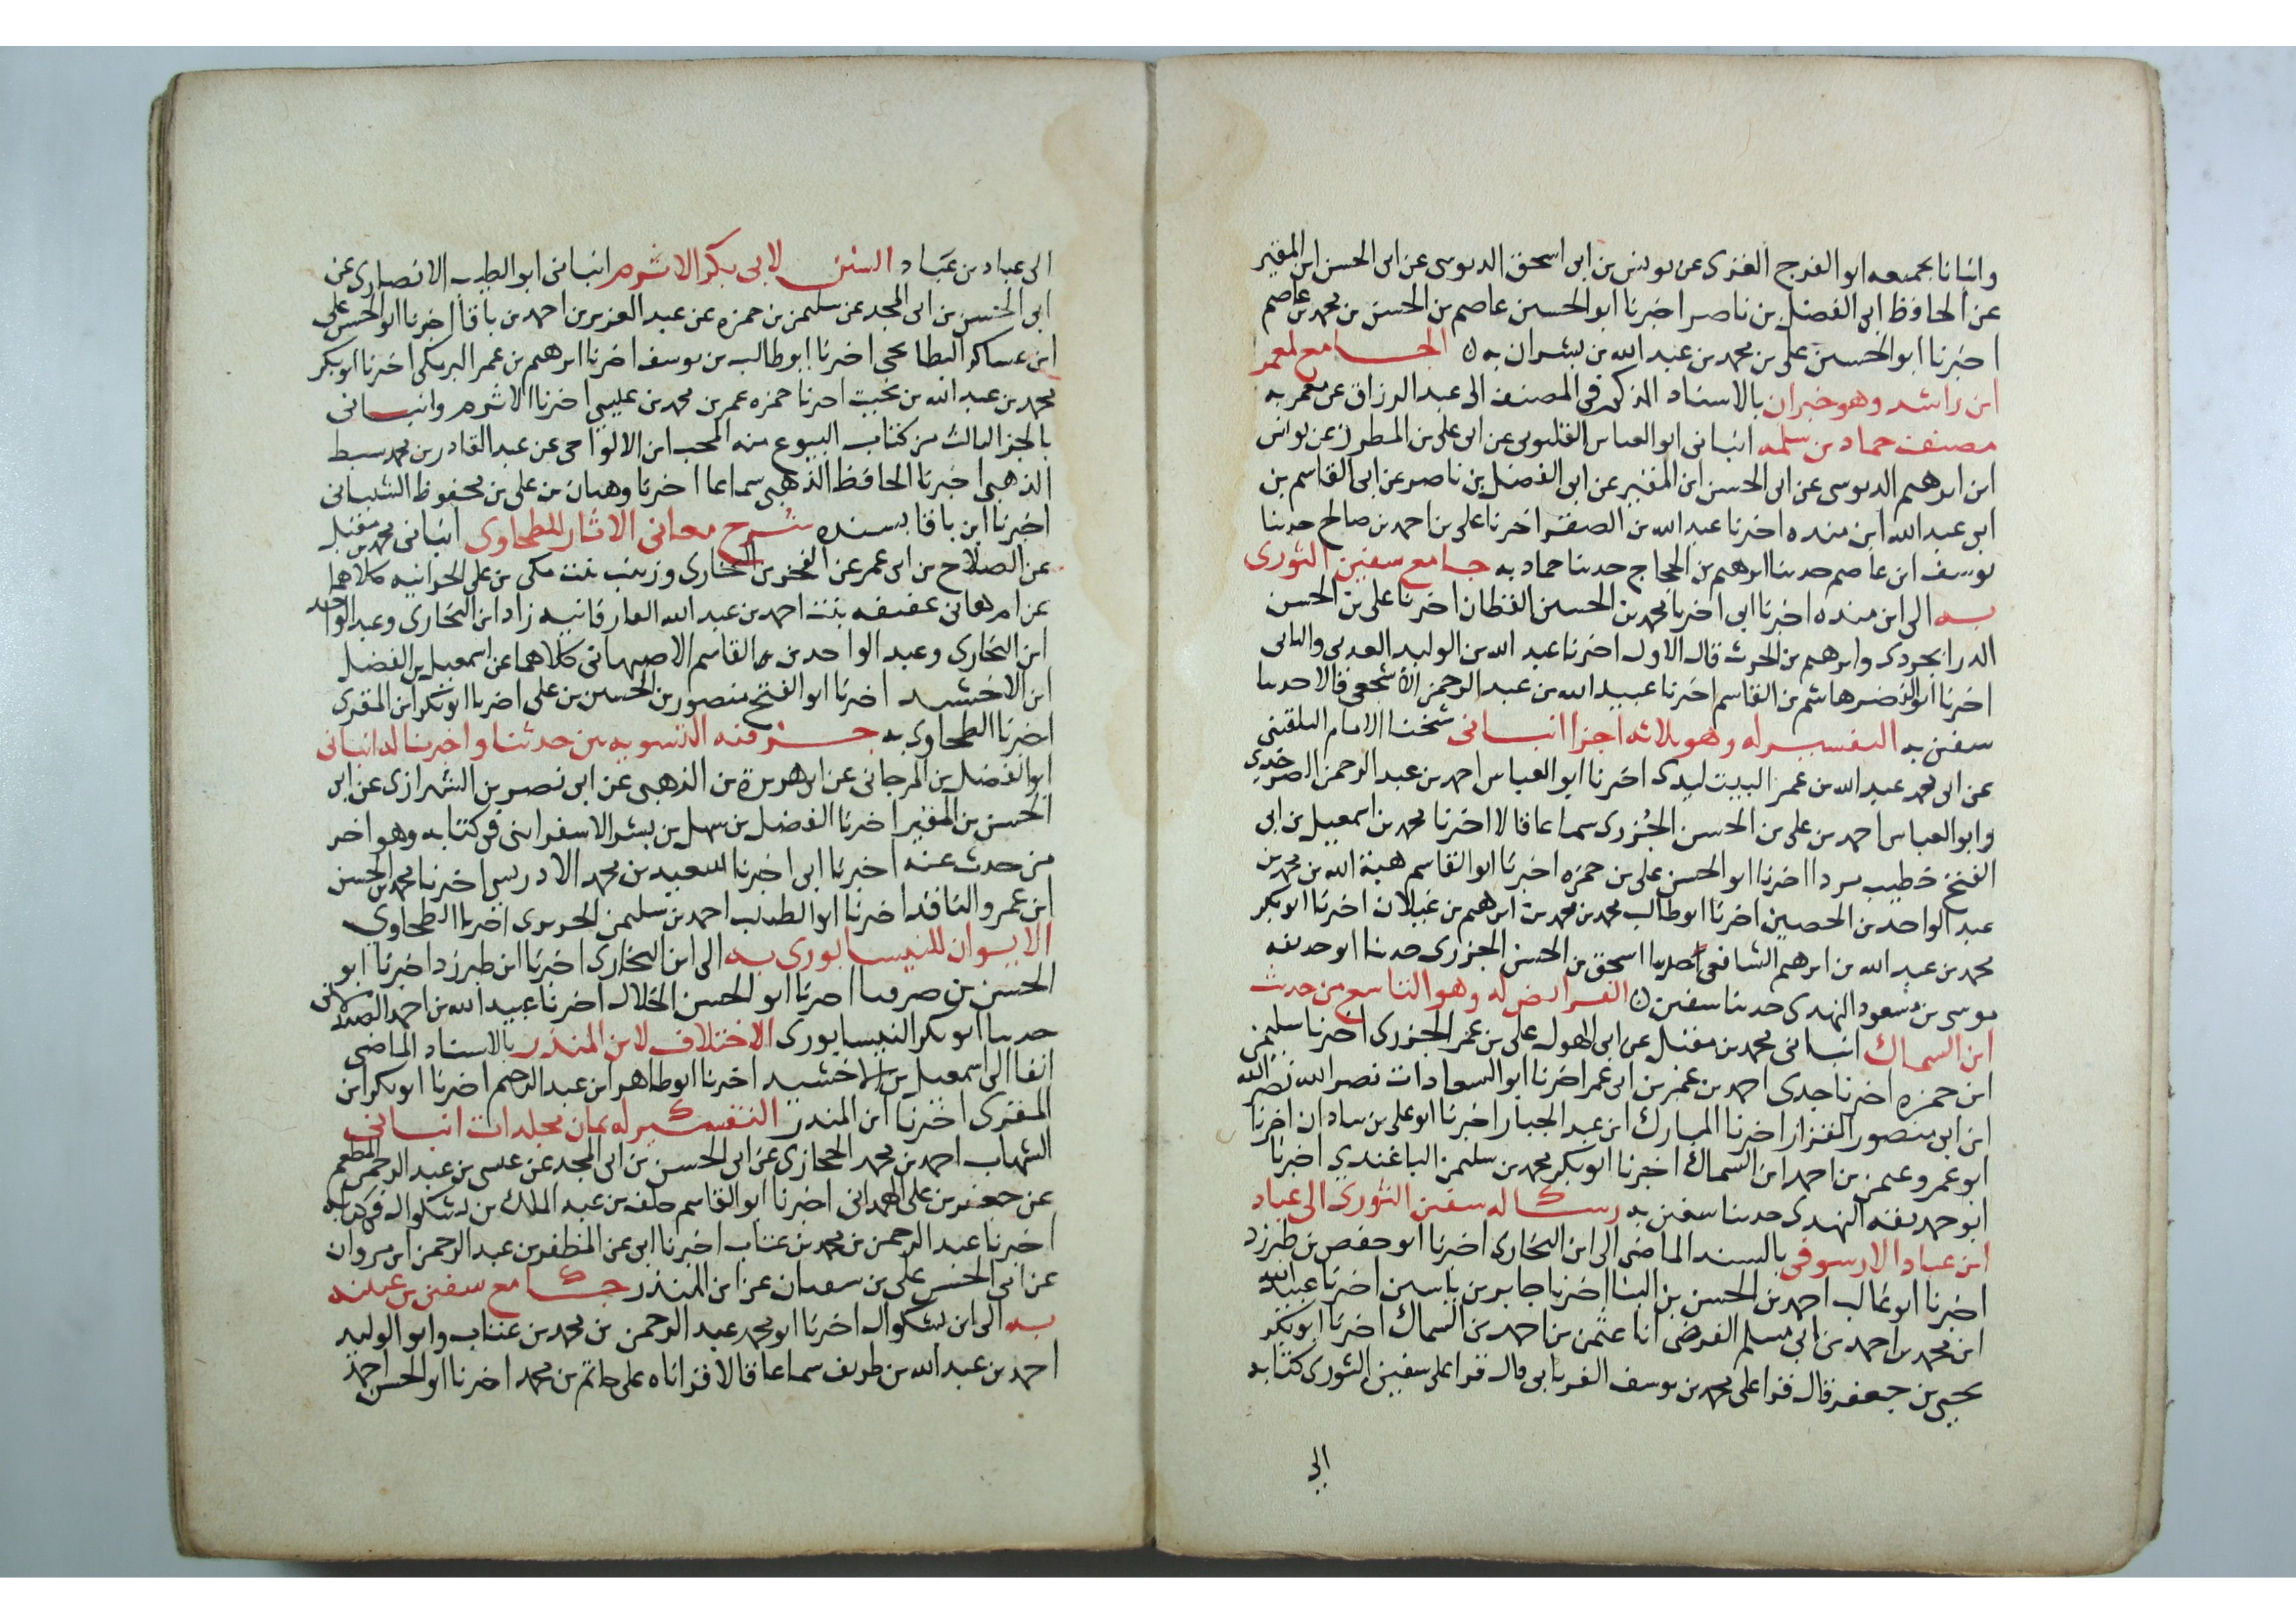 وانبانا بجميعه ابو الفرج الغزى عن يونس بن ابى اسحق الدبوسى عن ابى الحسن ابن المقير
عن الحافظ ابى الفضل بن ناصر اخبرنا ابو الحسين عاصم بن الحسن بن محمد بن عاصم
اخبرنا ابو الحسين على بن محمد بن عبد الله بن بشران به الجامع لمعمر
ابن راشد وهو جزان بالاسناد المذكور فى المصنف الى عبد الرزاق عن معمر به
مصنف حماد بن سلمه انبانى ابو العباس القليوبى عن ابى على بن المطرز عن يونس
ابن ابرهيم الدبوسى عن ابى الحسن ابن المقير عن ابى الفضل بن ناصر عن ابى القاسم بن
ابى عبد الله ابن منده اخبرنا عبد الله بن الصقر اخرنا على بن احمد بن صالح حدثنا
يوسف ابن عاصم حدثنا ابرهيم بن الحجاج حدثنا حماد به جامع سفين الثورى
به الى ابن منده اخبرنا ابى اخبرنا محمد بن الحسين القطان اخرنا على بن الحسن
الدرابجردى وابرهيم بن الحرث قال الاول اخرنا عبد الله بن الوليد العدنى والثانى
اخرنا ابو النضر هاشم بن القاسم اخرنا عبيد الله بن عبد الرحمن الاشجعى قالا حدثنا
سفين به التفسير له وهو ثلاثه اجزا انبانى شيخنا الامام البلقينى
عن ابى محمد عبد الله بن عمر البيت ليدى اخرنا ابو العباس احمد بن عبد الرحمن الصرخدى
وابو العباس احمد بن على بن الحسن الجزرى سماعا قالا اخرنا محمد بن اسمعيل بن ابى
الفتح خطيب مردا اخرنا ابو الحسن على بن حمزه اخبرنا ابو القاسم هبة الله بن محمد بن
عبد الواحد بن الحصين اخرنا ابو طالب محمد بن محمد بن ابرهيم بن غيلان اخرنا ابو بكر
محمد بن عبد الله بن ابرهيم الشافعى اسحق بن الحسن الجزرى حدثنا ابو حذيفه
موسى بن مسعود النهدى حدثنا سفين الفرايض له وهو التاسع من حديث
ابن السماك انبانى محمد بن مقبل عن ابى الهول على بن عمر الجزرى اخرنا سليمن
ابن حمزه اخرنا جدى احمد بن عمر بن ابى عمر اخرنا ابو السعادات نصر الله نصر الله
ابن ابى منصور القزاز اخرنا المبارك ابن عبد الجبار اخبرنا ابو على بن شاذان اخرنا
ابو عمرو عثمن بن احمد ابن السماك اخبرنا ابو بكر محمد بن سليمن الباغندى اخرنا
ابو حذيفه النهدى حدثنا سفين به رسالة سفين الثورى الى عباد
ابن عباد الارسوفى بالسند الماضى الى ابن البخارى اخرنا ابو حفص بن طبرزد
اخبرنا ابو غالب احمد بن الحسن بن البنا اخرنا جابر بن ياسين اخرنا عبيد الله
ابن محمد بن احمد بن ابى مسلم الفرضى انا عثمن بن احمد بن السماك اخرنا ابو بكر
يحيى بن جعفر قال قرا على محمد بن يوسف الفريابى قال قرا على سفين الثورى كتابه
الى
الى عباد بن عباد السنن لابى بكر الاثرم انبانى ابو الطيب الانصارى عن
ابى الحسن بن ابى المجد عن سليمن بن حمزه عن عبد العزيز بن احمد بن باقا اخرنا ابو الحسن على
ابن عساكر البطايحى اخرنا ابو طالب بن يوسف اخرنا ابرهيم بن عمر البرمكى اخرنا ابو بكر
محمد بن عبد الله بن بخيت اخرنا حمزه عمر بن محمد بن عيسى اخرنا الاثرم وانبانى
بالجز الثالث من كتاب البيوع منه المحب ابن الالواحى عن عبد القادر بن محمد سبط
الذهبى اخبرنا الحافظ الذهبى سماعا اخرنا وهبان بن على بن محفوظ الشيبانى
اخبرنا ابن باقا بسنده شرح معانى الاثار للطحاوى انبانى محمد بن مقبل
عن الصلاح بن ابى عمر عن الفخر بن البخارى وزينب بنت مكى بن على الحرانيه كلاهما
عن ام هانى عفيفه بنت احمد بن عبد الله الفارفانيه زاد ابن البخارى وعبد الواحد
ابن البخارى وعبد الواحد بن القاسم الاصبهانى كلاهما عن اسمعيل بن الفضل
ابن الاخشيد اخرنا ابو الفتح منصور بن الحسين بن على اخرنا ابو بكر ابن المقرى
اخبرنا الطحاوى به جز فيه التسويه بين حدثنا واخبرنا له انبانى
ابو الفضل بن المرجانى عن ابى هريرة بن الذهبى عن ابى نصر بن الشيرازى عن ابى
الحسن بن المقير اخرنا الفضل بن سهل بن بشر الاسفراينى فى كتابه وهو اخر
من حدث عنه اخبرنا ابى اخبرنا السعيد بن محمد الادريسى اخرنا محمد بن الحسن
ابن عمرو الناقد اخرنا ابو الطيب احمد بن سليمن الحريرى اخرنا الطحاوى
الايوان للنيسابورى به الى ابن البخارى اخبرنا ابن طبرزد اخبرنا ابو
الحسن بن صرما اخرنا ابو الحسن الخلال اخرنا عبيد الله بن احمد الصيدلانى
حدثنا ابو بكر النيسابورى الاختلاف لابن المنذر بالاسناد الماضى
انفا الى اسمعيل بن الاخشيد اخرنا ابو طاهر ابن عبد الرحيم اخرنا ابو بكر ابن
المقرى اخرنا ابن المنذر التفسير له ثمان مجلدات انبانى
الشهاب احمد بن محمد الحجازى عن ابى الحسن بن ابى المجد عن عيسى بن عبد الرحمن المطعم
عن جعفر بن على الهمدانى اخرنا ابو القاسم خلف بن عبد الملك بن بشكوال فى كتابه
اخبرنا عبد الرحمن بن محمد بن عتاب اخبرنا ابى عن المظفر بن عبد الرحمن ابن مروان
عن ابى الحسن على بن سفيان عن ابن المنذر جامع سفين بن عيينه
به الى ابن بشكوال اخرنا ابو محمد عبد الرحمن بن محمد بن عتاب وابو الوليد
احمد بن عبد الله بن طريف سماعا قالا قراناه على حاتم بن محمد اخرنا ابو الحسن احمد